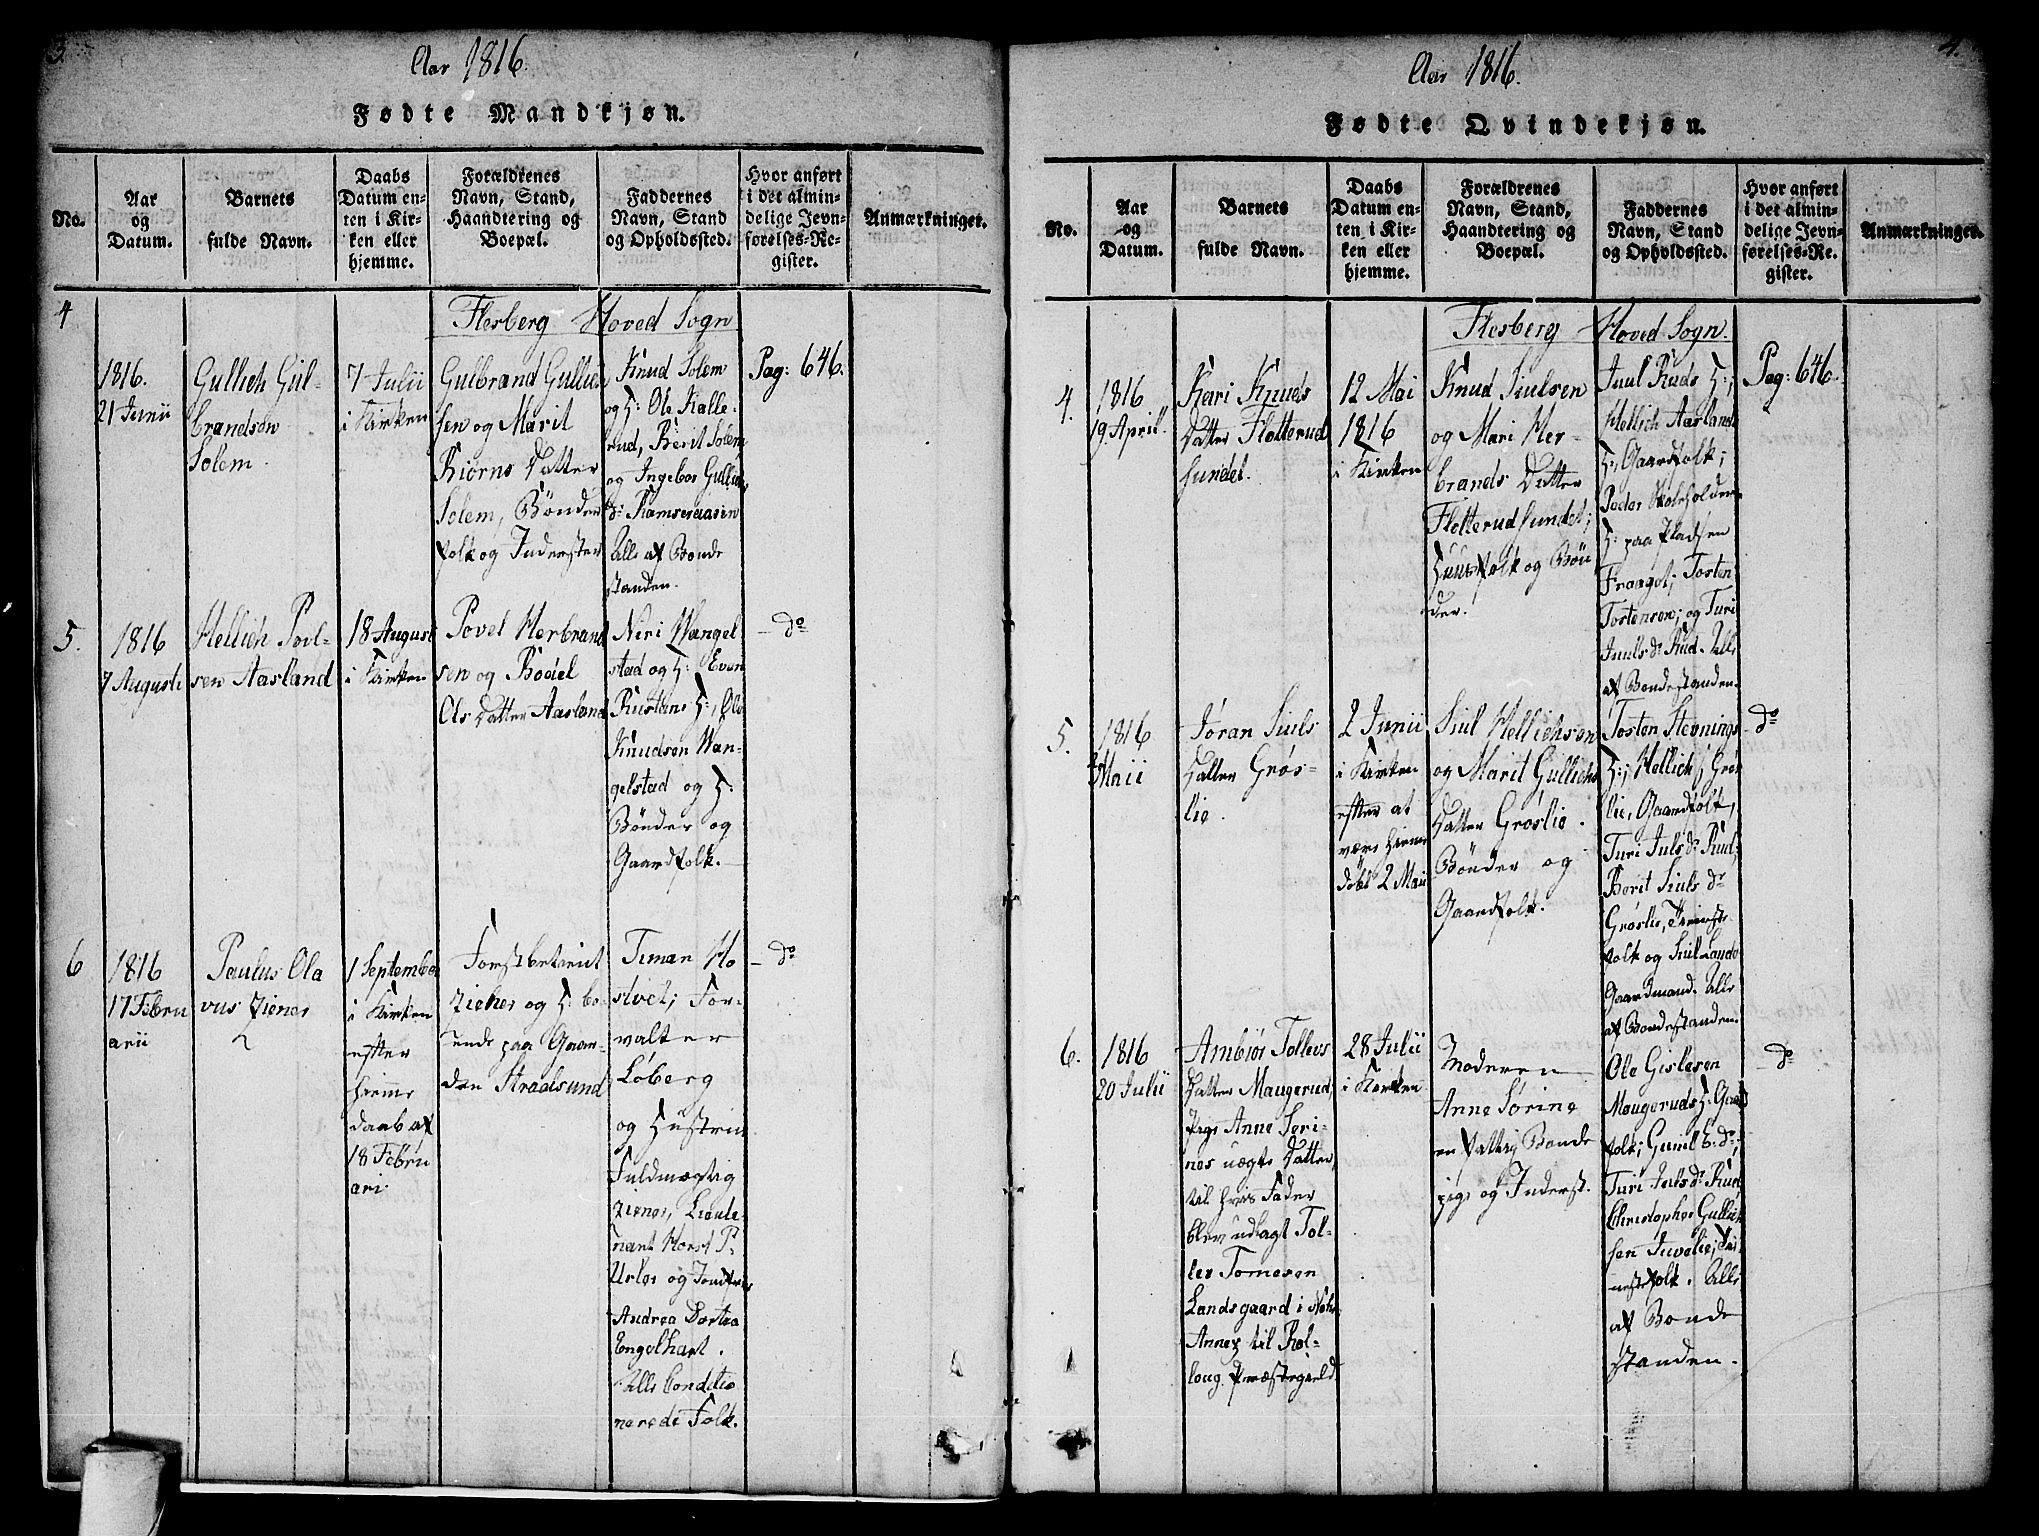 3.
Aar 1816.
Fødte Mandkjøn.
No.
Aar
og
Datum.
Barnets
fulde Navn.
Daabs
Datum en-
ten i Kir-
ken eller
hjemme.
Forældrenes
Navn, Stand,
Haandtering og
Boepæl.
Faddernes
Navn, Stand
og Opholdssted.
Hvor anført
i det almin-
delige Jevn-
førelses-Re-
gister.
Anmærkninger.
Flesberg Hoved Sogn
4
1816.
21 Junii
Gullich Gul-
brandsøn
Solem.
7 Julii
i Kirken
Gulbrand Gullich
sen og Marit
Biørns Datter
Solem, Bønder
folk og Inderster
Knud Solem
og H: Ole Kalle-
rud, Berit Solem
og Ingebor Gullichs
d: Ramseraasen
Alle af Bonde
standen.
Pag: 646.
5.
1816
7 Augusti
Hellich Povl-
sen Aasland
18 August
i Kirken
Povel Herbrand
sen og Bodil
Ols Datter Aasland
Neri Wangel-
stad og H: Even
Rustans H:, Ole
Knudsen Wan-
gelstad og H:
Bønder og
Gaardfolk.
do
6
1816
17 Febru
arii
Paulus Ola
vus Ziener
1 September
i Kirken
efter
hjeme
daab af
18 Febru
ari
Forstbetient
Ziener og H: bo-
ende paa Gaar-
den Stradsund
Timan Ho
stvet; For-
valter
Løberg
og Hustrue
Fuldmægtig
Ziener, Lieute-
nant Horst P.
Urlor og Jomfrue
Andrea Dortea
Engelhart.
Alle Conditio
nerede Folk.
do
4.
Aar 1816.
Fødte Qvindekjøn.
No.
Aar
og
Datum.
Barnets
fulde Navn.
Daabs
Datum en-
ten i Kir-
ken eller
hjemme.
Forældrenes
Navn, Stand,
Haandtering og
Boepæl.
Faddernes
Navn, Stand
og Opholdssted.
Hvor anført
i det almin-
delige Jevn-
førelses-Re-
gister.
Anmærkninger.
Flesberg Hoved Sogn.
4.
1816
19 April
Kari Knuds
Datter Flotterud
sundet.
12 Mai
1816
i Kirken
Knud Siulsen
og Mari Her-
brands Datter
Flotterudsundet;
Huusfolk og Bøn
der.
Juul Ruds H:;
Hellich Aaslands
H:, Gaardfolk;
Peder Skoleholders
H: paa Pladsen
Fraagot; Tosten
Tostensen; og Turi
Juuls d: Rud. Alle
af Bondestanden.
Pag: 646.
5.
1816
Maii
Jøran Siuls
Datter Grøs-
lie.
2 Junii
i Kirken
efter at
være hieme
døbt 2 Maii
Siul Hellichsen
og Marit Gullichs
Datter Grøslie.
Bønder og
Gaardfolk.
Tosten Stevnings
H:; Hellich Grøs
lie, Gaardfolk,
Turi Juls d: Rud;
Berit Siuls dr
Grøslie, Tienest-
folk og Siul Lande
Gaardmand. Alle
af Bondestanden.
do
6.
1816
20 Julii
Ambiør Tollevs
Datter Maugerud;
Pige Anne Seri-
nes uægte Datter,
til hvis Fader
blev udlagt Tol-
lev Tomesen
Landsgaard i
Annex til Rol-
loug Præstegield
28 Julii
i Kirken
Moderen
Anne Sørine
en fattig Bonde
pige og Inderst.
Ole Gislesen
Maugeruds H: Gaard
folk; Gunil E: d:;
Turi Juls d: Rud
Christopher Gullich
sen Juvelie; Tie
nestfolk. Alle
af Bonde
standen.
do